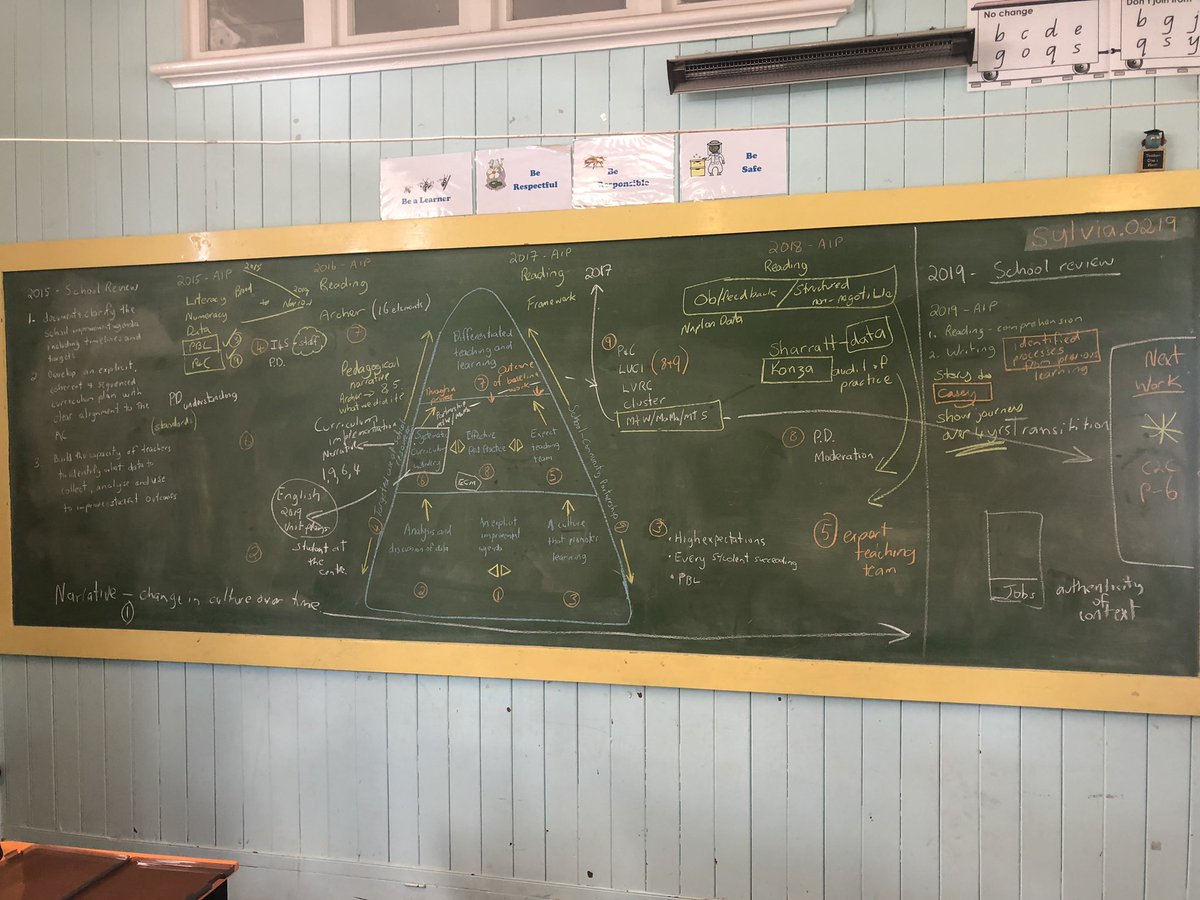 No change
b c d e
g o q s
Don't join from
b g j
q s y
Be a Learner
Be
Respectful
Be
Responsible
Be
Safe
2015 - School Review
1. documents clarify the
School improvement agenda
including timelines and
targets
2 Develop an explicit,
coherent & sequenced
curriculum plan with
clear alignment to the
AC
3. Build the capacity of teachers
to identify what data to
collect, analyse and use
to improve student outcomes
PD understanding
(standards)
2015 - AIP
Literacy
Numeracy
Data
PBL
P&C
Broad
to
Narrow
2015
2019
2016 - AIP
Reading
Archer (16 elements)
7
staff
P.D.
Pedagogical
narrative
Archer → 8, 5.
what we did it
Curriculum
implementation
Narrative
1, 9, 6, 4
English
2019
Unit plans
Student at
the
centre.
2
Narrative - change in culture over time
1
2017 - AIP
Reading
Framework
2017
Differentiated
teaching and
learning
7
Outcome
of baseline
work
Systematic
Curriculum
delivery
6
Effective
Ped Practice
8
Expert
teaching
team
5
School-Community Partnerships
Analysis and
discussion of data
2
An explicit
improvement
agenda
1
A culture
that promotes
learning
3
9
P&C
LUCI (8+9)
LVRC
Cluster
3
• High expectations
• Every student succeeding
• PBL
2018 - AIP
Reading
Ob/feedback / Structured
non-negotiable
Naplan Data
Sharratt - data
Konza
audit of
practice
8 P.D.
Moderation
5 expert
teaching
team
Sylvia.0219
2019 - School review
2019 - AIP
1. Reading - comprehension
2. Writing
identified
processes
from previous
learning
Story
Casey
show journey
over 4 yrs / transitition
Jobs
authenticity
of
context
Next
Work
C2C
P-6